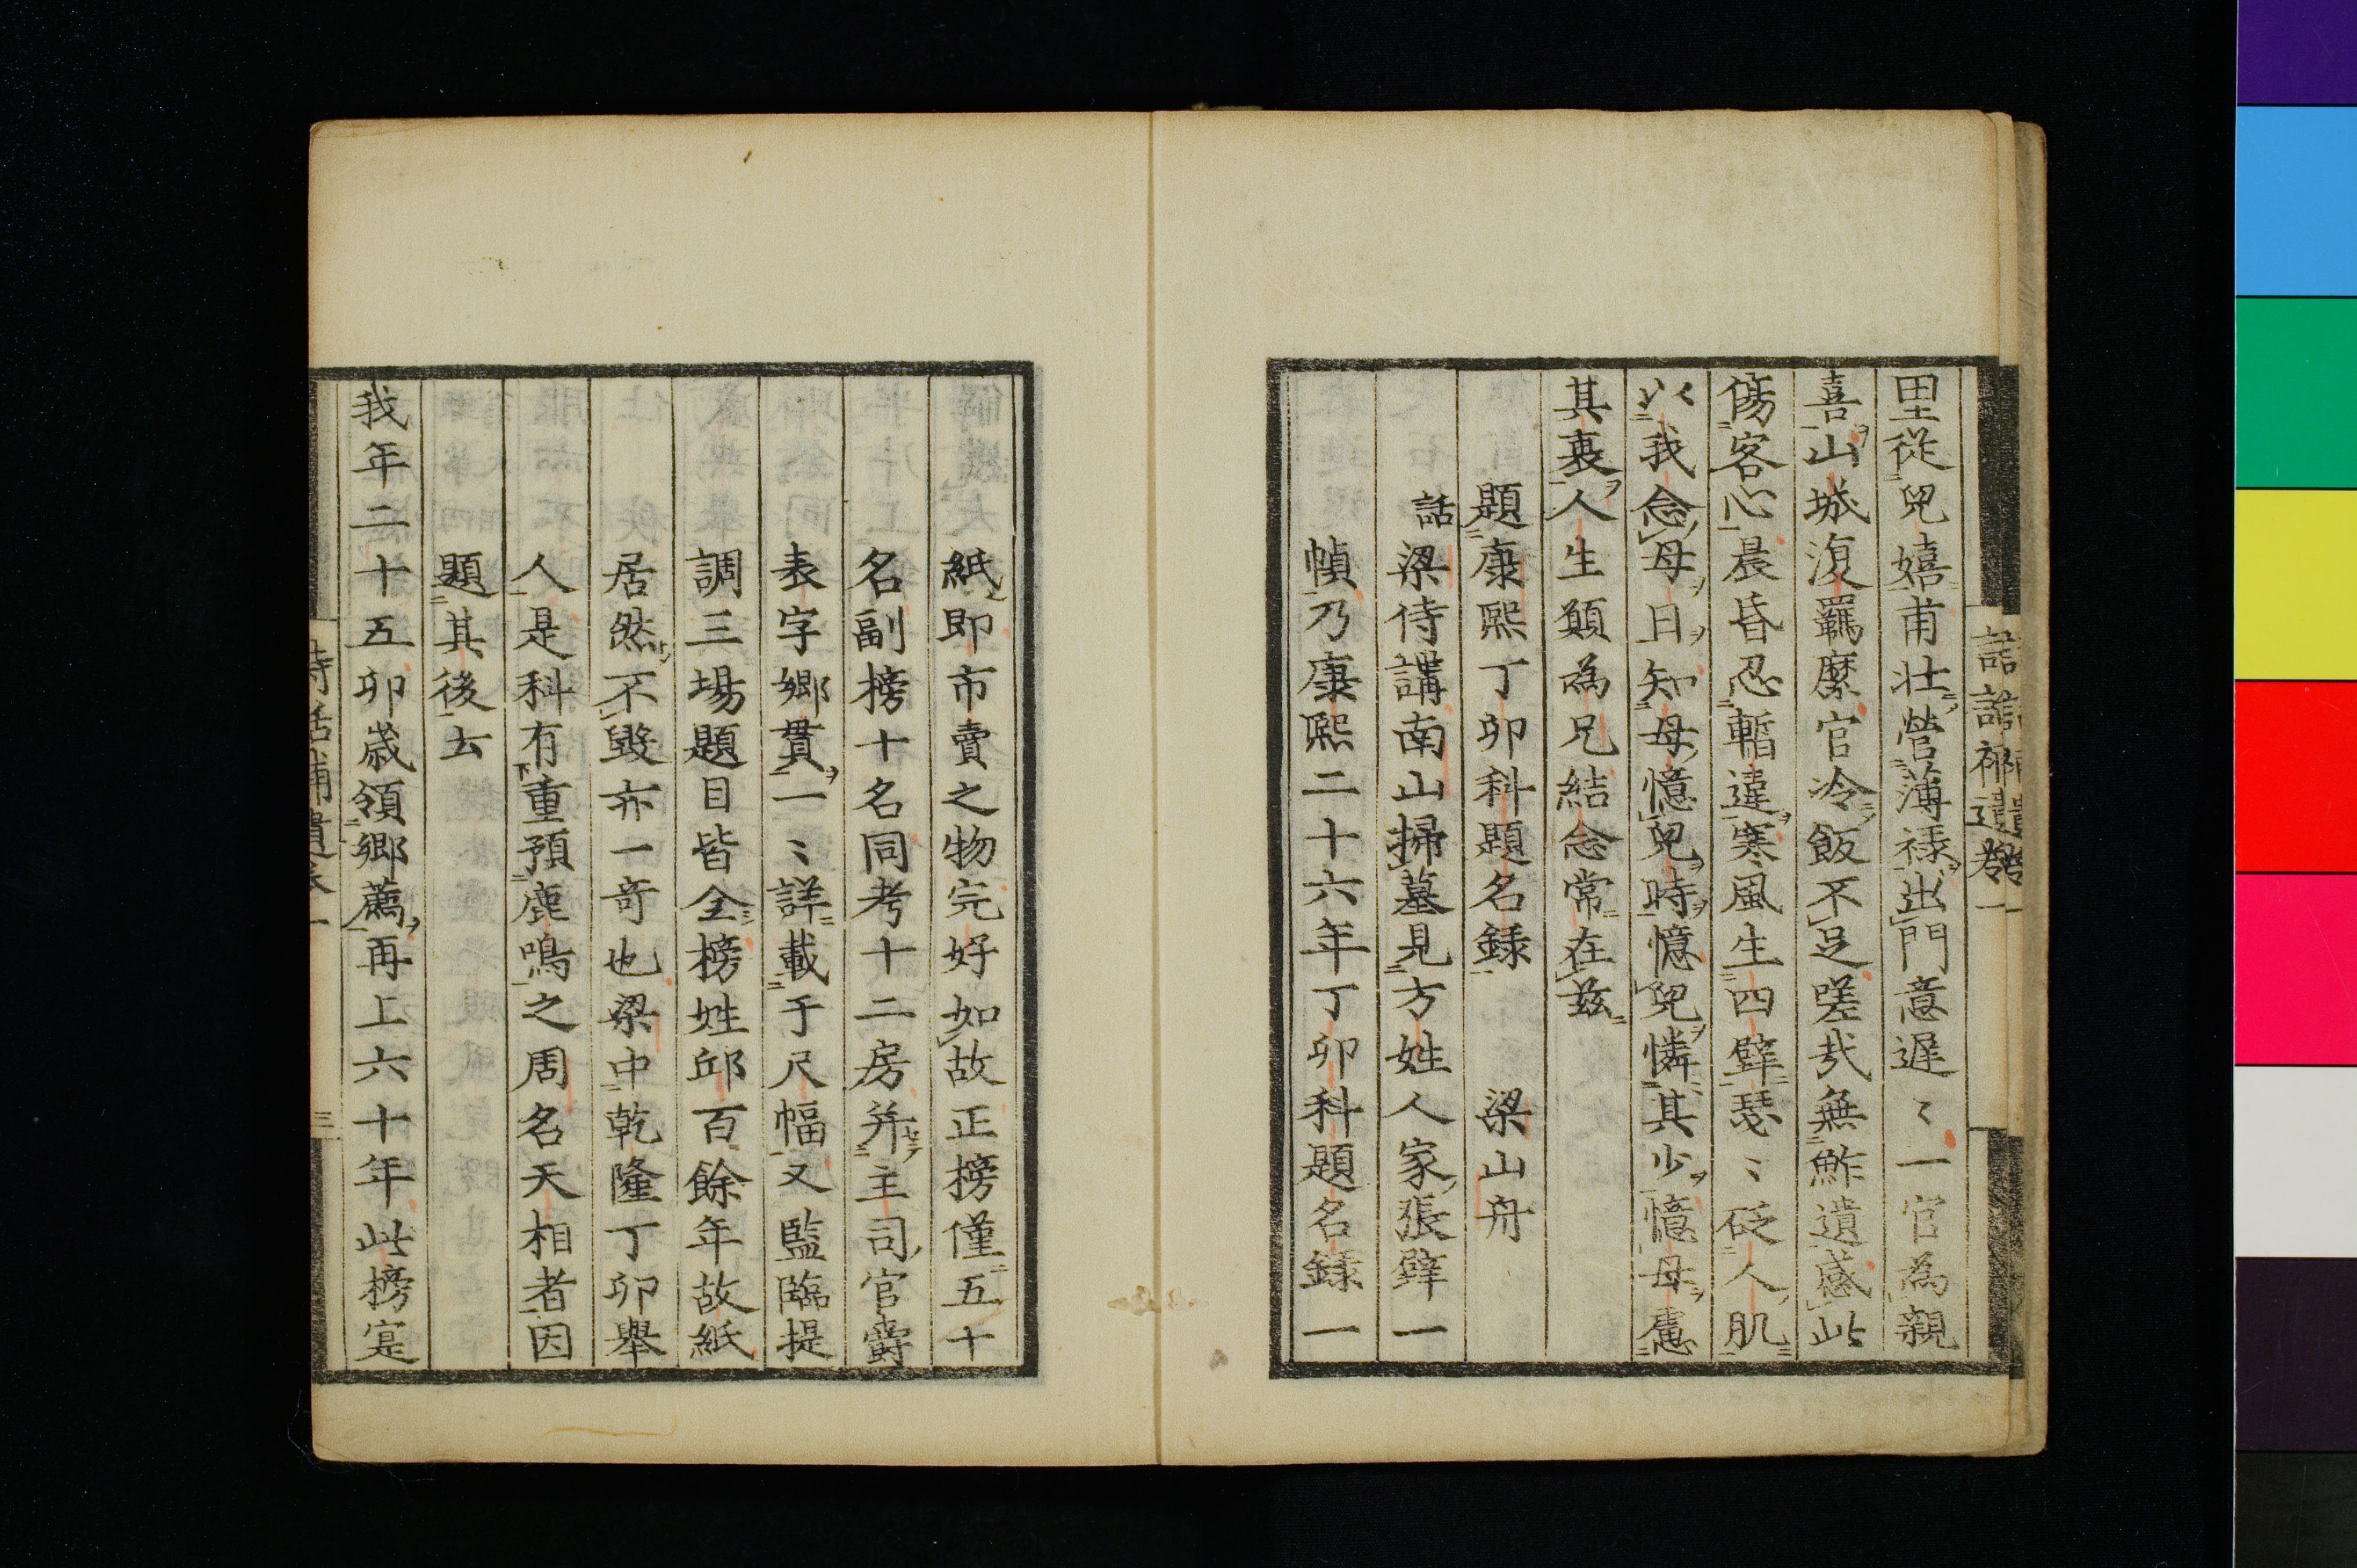 里從兒嬉甫壯營薄祿出門意遲〻一官為親
喜山城復羈縻官冷飯不足嗟哉無鮓遺感此
傷客心晨昏忍暫違寒風生四壁瑟〻砭人肌
以我念母日知母憶兒時憶兒憐其少憶母慮
其衰人生願為兄結念常在茲
題康熙丁卯科題名錄　梁山舟
話梁侍講南山掃墓見方姓人家張壁一
幀乃康熙二十六年丁卯科題名錄一
紙即市賣之物完好如故正榜僅五十
名副榜十名同考十二房并主司官爵
表字鄉貫一〻詳載于尺幅又監臨提
調三場題目皆全榜姓邱百餘年故紙
居然不毀亦一奇也梁中乾隆丁卯舉
人是科有重預鹿鳴之周名天相者因
題其後云
我年二十五卯歲領鄉薦再上六十年此榜寔
詩話補遺卷一
三